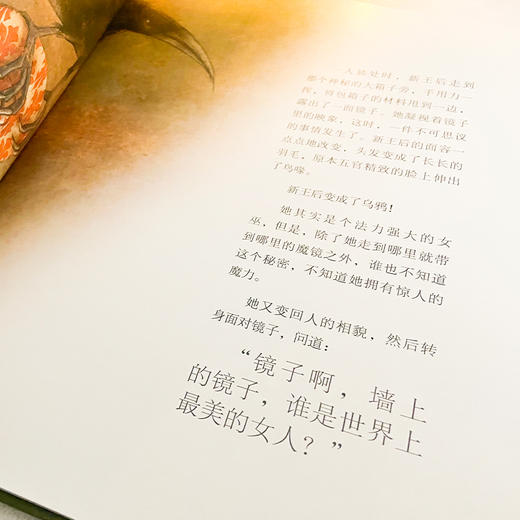 一人独处时，新王后走到
那个神秘的大箱子旁，手用力一
挥，将包箱子的材料甩到一边，
露出了一面镜子。她凝视着镜子
里的映象，这时，一件不可思议
的事情发生了。新王后的面容一
点点地改变，头发变成了长长的
羽毛，原本五官精致的脸上伸出
了鸟喙。
新王后变成了乌鸦！
她其实是个法力强大的女
巫，但是，除了她走到哪里就带
到哪里的魔镜之外，谁也不知道
这个秘密，不知道她拥有惊人的
魔力。
她又变回人的相貌，然后转
身面对镜子，问道：
“镜子啊，墙上
的镜子，谁是世界上
最美的女人？”